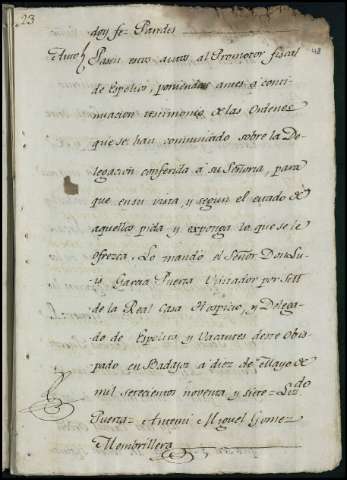 23
48
doy fe= Paredes
Auto} Pasen estos autos al Promotor fiscal
de Espolios, poniendose antes a conti-
nuacion testimonio de las Ordenes
que se han comunicado sobre la De-
legacion conferida a su Señoria, para
que en su vista, y segun el estado de
aquellos pida y exponga lo que se le
ofrezca. Lo mandó el Señor Don Lu-
is Garcia Puerza Visitador por S. M.
de la Real Casa Hospicio, y Delega-
do de Espolios y Vacantes de este Obis-
pado en Badajoz a diez de Mayo de
mil setecientos noventa y siete= Liz.do
Puerza= Antemi Miguel Gomez
Membrillera